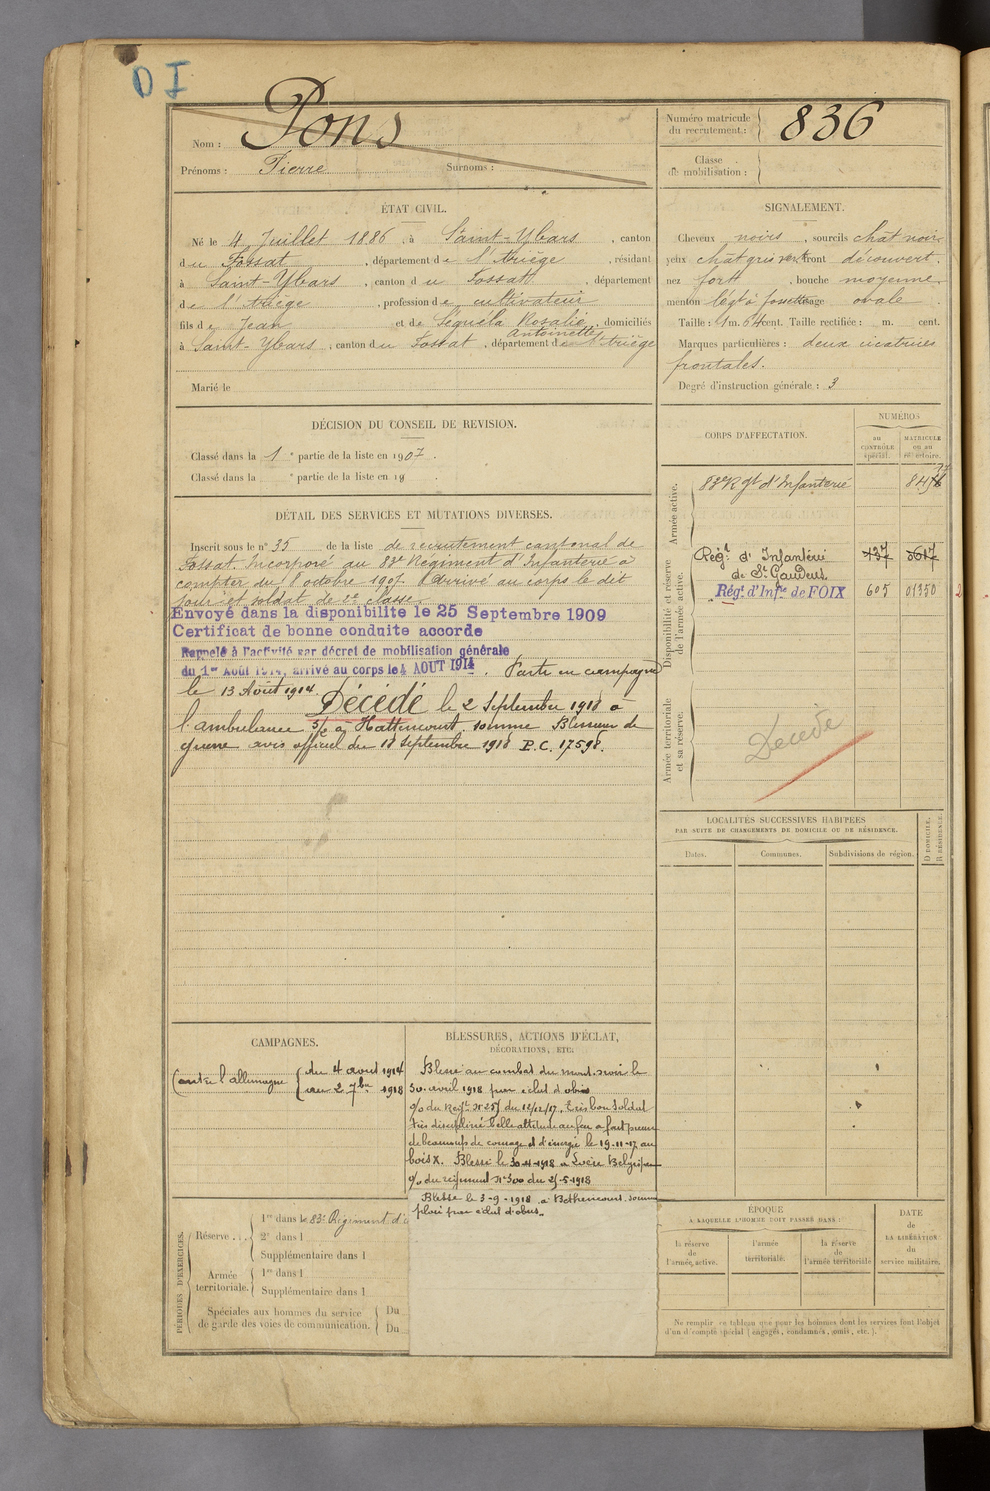 D I
Nom : Pons
Prénoms : Pierre Surnoms :
Numéro matricule du recrutement : 836
Classe de mobilisation :
ÉTAT CIVIL.
Né le 4 Juillet 1886, à Saint-Ybars, canton
du Fossat, département de l'Ariège, résidant
à Saint-Ybars, canton du Fossat, département
de l'Ariège, profession de cultivateur
fils de Jean et de Séguéla Rosalie Antoinette, domiciliés
à Saint-Ybars, canton du Fossat, département de l'Ariège
Marié le
SIGNALEMENT.
Cheveux noirs, sourcils chât noirs
yeux chât gris vert front découvert.
nez fort, bouche moyenne.
menton légt à fossette visage ovale
Taille : 1 m. 64 cent. Taille rectifiée : m. cent.
Marques particulières : deux cicatrices
frontales.
Degré d'instruction générale : 3
DÉCISION DU CONSEIL DE REVISION.
Classé dans la 1e partie de la liste en 1907.
Classé dans la e partie de la liste en 19 .
DÉTAIL DES SERVICES ET MUTATIONS DIVERSES.
Inscrit sous le n° 35 de la liste de recrutement cantonal de
Fossat. Incorporé au 83e Régiment d'Infanterie à
compter du 8 octobre 1907. Arrivé au corps le dit
jour et soldat de 2e classe.
Envoyé dans la disponibilité le 25 Septembre 1909
Certificat de bonne conduite accordé
Rappelé à l'activité par décret de mobilisation générale
du 1er Août 1914, arrivé au corps le 4 AOUT 1914. Parti en campagne
le 13 Août 1914. Décédé le 2 septembre 1918 à
l'ambulance 3/2 à Hattencourt, somme Blessures de
guerre avis officiel du 18 septembre 1918 P.C. 17598.
CORPS D'AFFECTATION.
NUMÉROS
au CONTRÔLE spécial.
MATRICULE ou au répertoire.
Armée active.
83e Rgt d'Infanterie
Disponibilité et réserve de l'armée active.
Régt d'Infanterie de St Gaudens 437 3617
Régt d'Infie de FOIX 605 01350
Armée territoriale et sa réserve.
Décédé
LOCALITÉS SUCCESSIVES HABITÉES
PAR SUITE DE CHANGEMENTS DE DOMICILE OU DE RÉSIDENCE.
Dates. Communes. Subdivisions de région. D DOMICILE. R RÉSIDENCE.
CAMPAGNES.
Contre l'allemagne du 4 aout 1914
au 2 7bre 1918
BLESSURES, ACTIONS D'ÉCLAT,
DÉCORATIONS, ETC.
Blessé au combat du mont noir le
30 avril 1918 par éclat d'obus
o/o du Régt N° 257 du 12/12/17. Très bon soldat
très discipliné belle attitude au feu a fait preuve
de beaucoup de courage et d'énergie le 19-11-17 au
bois X. Blessé le 30-4-1918 à Locre Belgique
o/o du régiment N° 300 du 25-5-1918
Blessé le 3-9-1918 à Bethencourt somme
plaie par éclat d'obus.
PÉRIODES D'EXERCICES.
Réserve . . . 1re dans le 83e Régiment d'
2e dans l
Supplémentaire dans l
Armée territoriale. 1re dans l
Supplémentaire dans l
Spéciales aux hommes du service
de garde des voies de communication. Du
Du
ÉPOQUE
À LAQUELLE L'HOMME DOIT PASSER DANS :
la réserve de l'armée active.
l'armée territoriale.
la réserve de l'armée territoriale
DATE de LA LIBÉRATION du service militaire.
Ne remplir ce tableau que pour les hommes dont les services font l'objet
d'un décompte spécial (engagés, condamnés, omis, etc.).